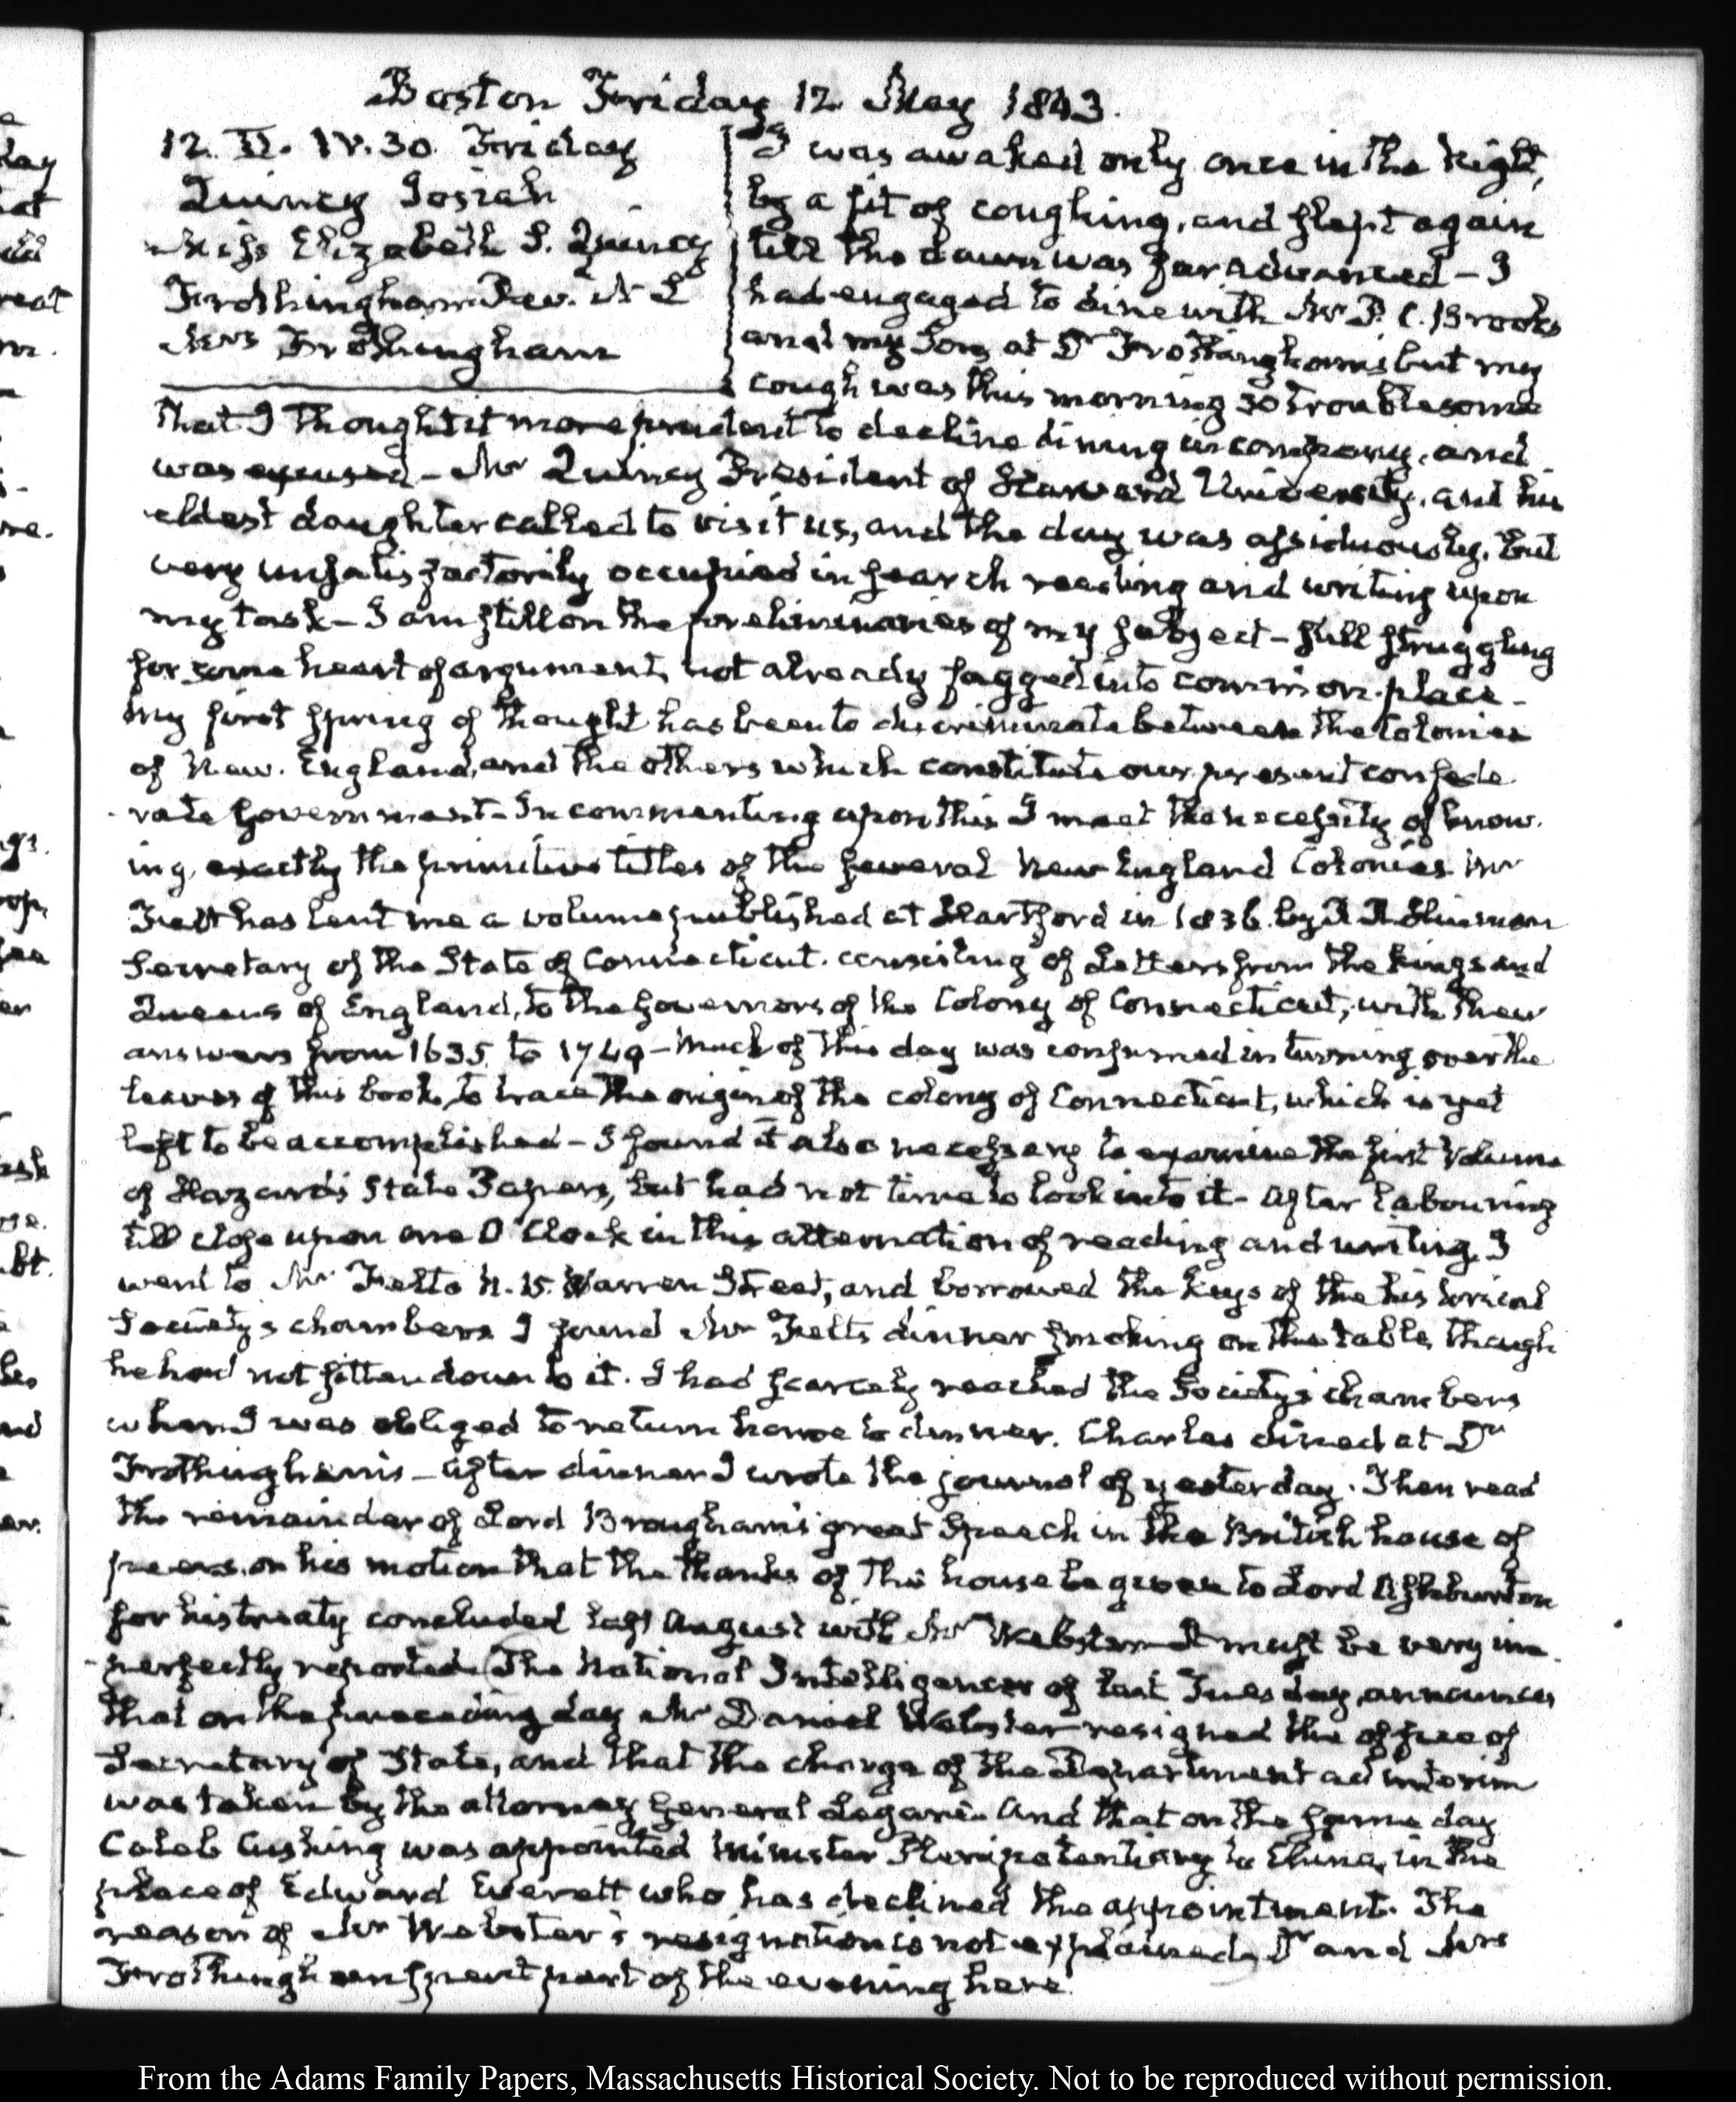 Boston Friday 12 May 1843.
12. II. IV.30. Friday
Quincy Josiah
Miss Elizabeth S. Quincy
Frothingham Rev. N L
Mrs Frothingham
I was awaked only once in the Night,
by a fit of coughing, and slept again
till the dawn was far advanced – I
had engaged to dine with Mr P. C. Brooks
and my Son, at Dr Frothingham's but my
cough was this morning so troublesome
that I thought it more prudent to decline dining in company, and
was excused – Mr Quincy President of Harvard University, and his
eldest daughter called to visit us, and the day was assiduously, but
very unsatisfactorily occupied in search reading and writing upon
my task – I am still on the preliminaries of my subject – still struggling
for some heart of argument, not already fagged into common-place –
My first spring of thought has been to discriminate between the Colonies
of New-England, and the others which constitute our present confede-
rate Government – In commenting upon this I meet the necessity of know-
ing, exactly the primitive titles of the several New England Colonies Mr
Felt has lent me a volume published at Hartford in 1836. by R R Hinman
Secretary of the State of Connecticut. consisting of Letters from the Kings and
Queens of England, to the Governors of the Colony of Connecticut, with their
answers from 1635. to 1749 – Much of this day was consumed in turning over the
leaves of this book, to trace the origin of the colony of Connecticut, which is yet
left to be accomplished – I found it also necessary to examine the first Volume
of Hazard's State Papers, but had not time to look into it – After labouring
till close upon one O'Clock in this alternation of reading and writing, I
went to Mr Felt's N. 15. Warren Street, and borrowed the keys of the historical
Society's chambers I found Mr Felt's dinner smoking on the table, though
he had not sitten down to it. I had scarcely reached the Society's chambers
when I was obliged to return home to dinner. Charles dined at Dr
Frothingham's – After dinner I wrote the journal of yesterday. Then read
the remainder of Lord Brougham's great Speech in the British house of
peers, on his motion that the thanks of the house be given to Lord Ashburton
for his treaty concluded last August with Mr Webster It must be very im-
perfectly reported. The National Intelligencer of last Tuesday, announces
that on the preceding day Mr Daniel Webster resigned the office of
Secretary of State, and that the charge of the Department ad interim
was taken by the attorney General Legaré. And that on the same day
Caleb Cushing was appointed Minister Plenipotentiary to China, in the
place of Edward Everett who has declined the appointment. The
reason of Mr Webster's resignation is not explained, Dr and Mrs
Frothingham spent part of the evening here.
From the Adams Family Papers, Massachusetts Historical Society. Not to be reproduced without permission.